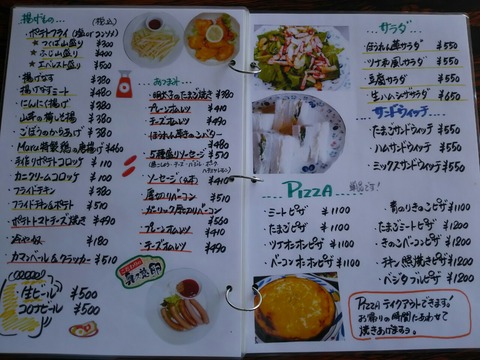 揚げもの… (税込)
・ポテトフライ(塩 or コンソメ)
★つくば山盛り ¥300
★ふじ山盛り ¥400
★エベレスト盛り ¥500
・揚げなす ¥380
・揚げなすミート ¥480
・にんにく揚げ ¥380
・山芋の 揚げ ¥380
・ごぼうのから揚げ ¥380
・Maru特製鶏の唐揚 ¥460
・手作りポテトコロッケ ¥110
・カニクリームコロッケ ¥160
・フライドチキン ¥380
・フライドチキン&ポテト ¥510
・ポテトトマトチーズ焼き ¥490
¥180
・カマンベール&クラッカー ¥510
生ビール ¥500
コロナビール ¥500
おつまみ…
・明太子のたまご焼き ¥380
・プレーンオムレツ ¥410
・チーズオムレツ ¥490
・ほうれん草のバター ¥480
・5種盛りソーセージ ¥510
・ソーセージ ¥410
・厚切りベーコン ¥510
・ガーリック厚切りベーコン ¥560
・プレーンオムレツ ¥410
・チーズオムレツ ¥490
サラダ
・ほうれん草サラダ ¥550
・ツナ和風サラダ ¥550
・豆腐サラダ ¥550
・生ハムシーザサラダ ¥650
サンドウィッチ
・たまごサンドウィッチ ¥550
・ハムサンドウィッチ ¥550
・ミックスサンドウィッチ ¥550
PIZZA 絶品です!
・ミートピザ ¥1100
・たまごピザ ¥1100
・ツナオホホピザ ¥1100
・ベーコンオホホピザ ¥1100
・青のりきのこピザ ¥1200
・たまごミートピザ ¥1200
・きのこベーコンピザ ¥1200
・チキン照焼きピザ ¥1200
・ベジタブルピザ ¥1200
PIZZA テイクアウトできます!
お帰りの時間にあわせて
焼きあげまぁす。